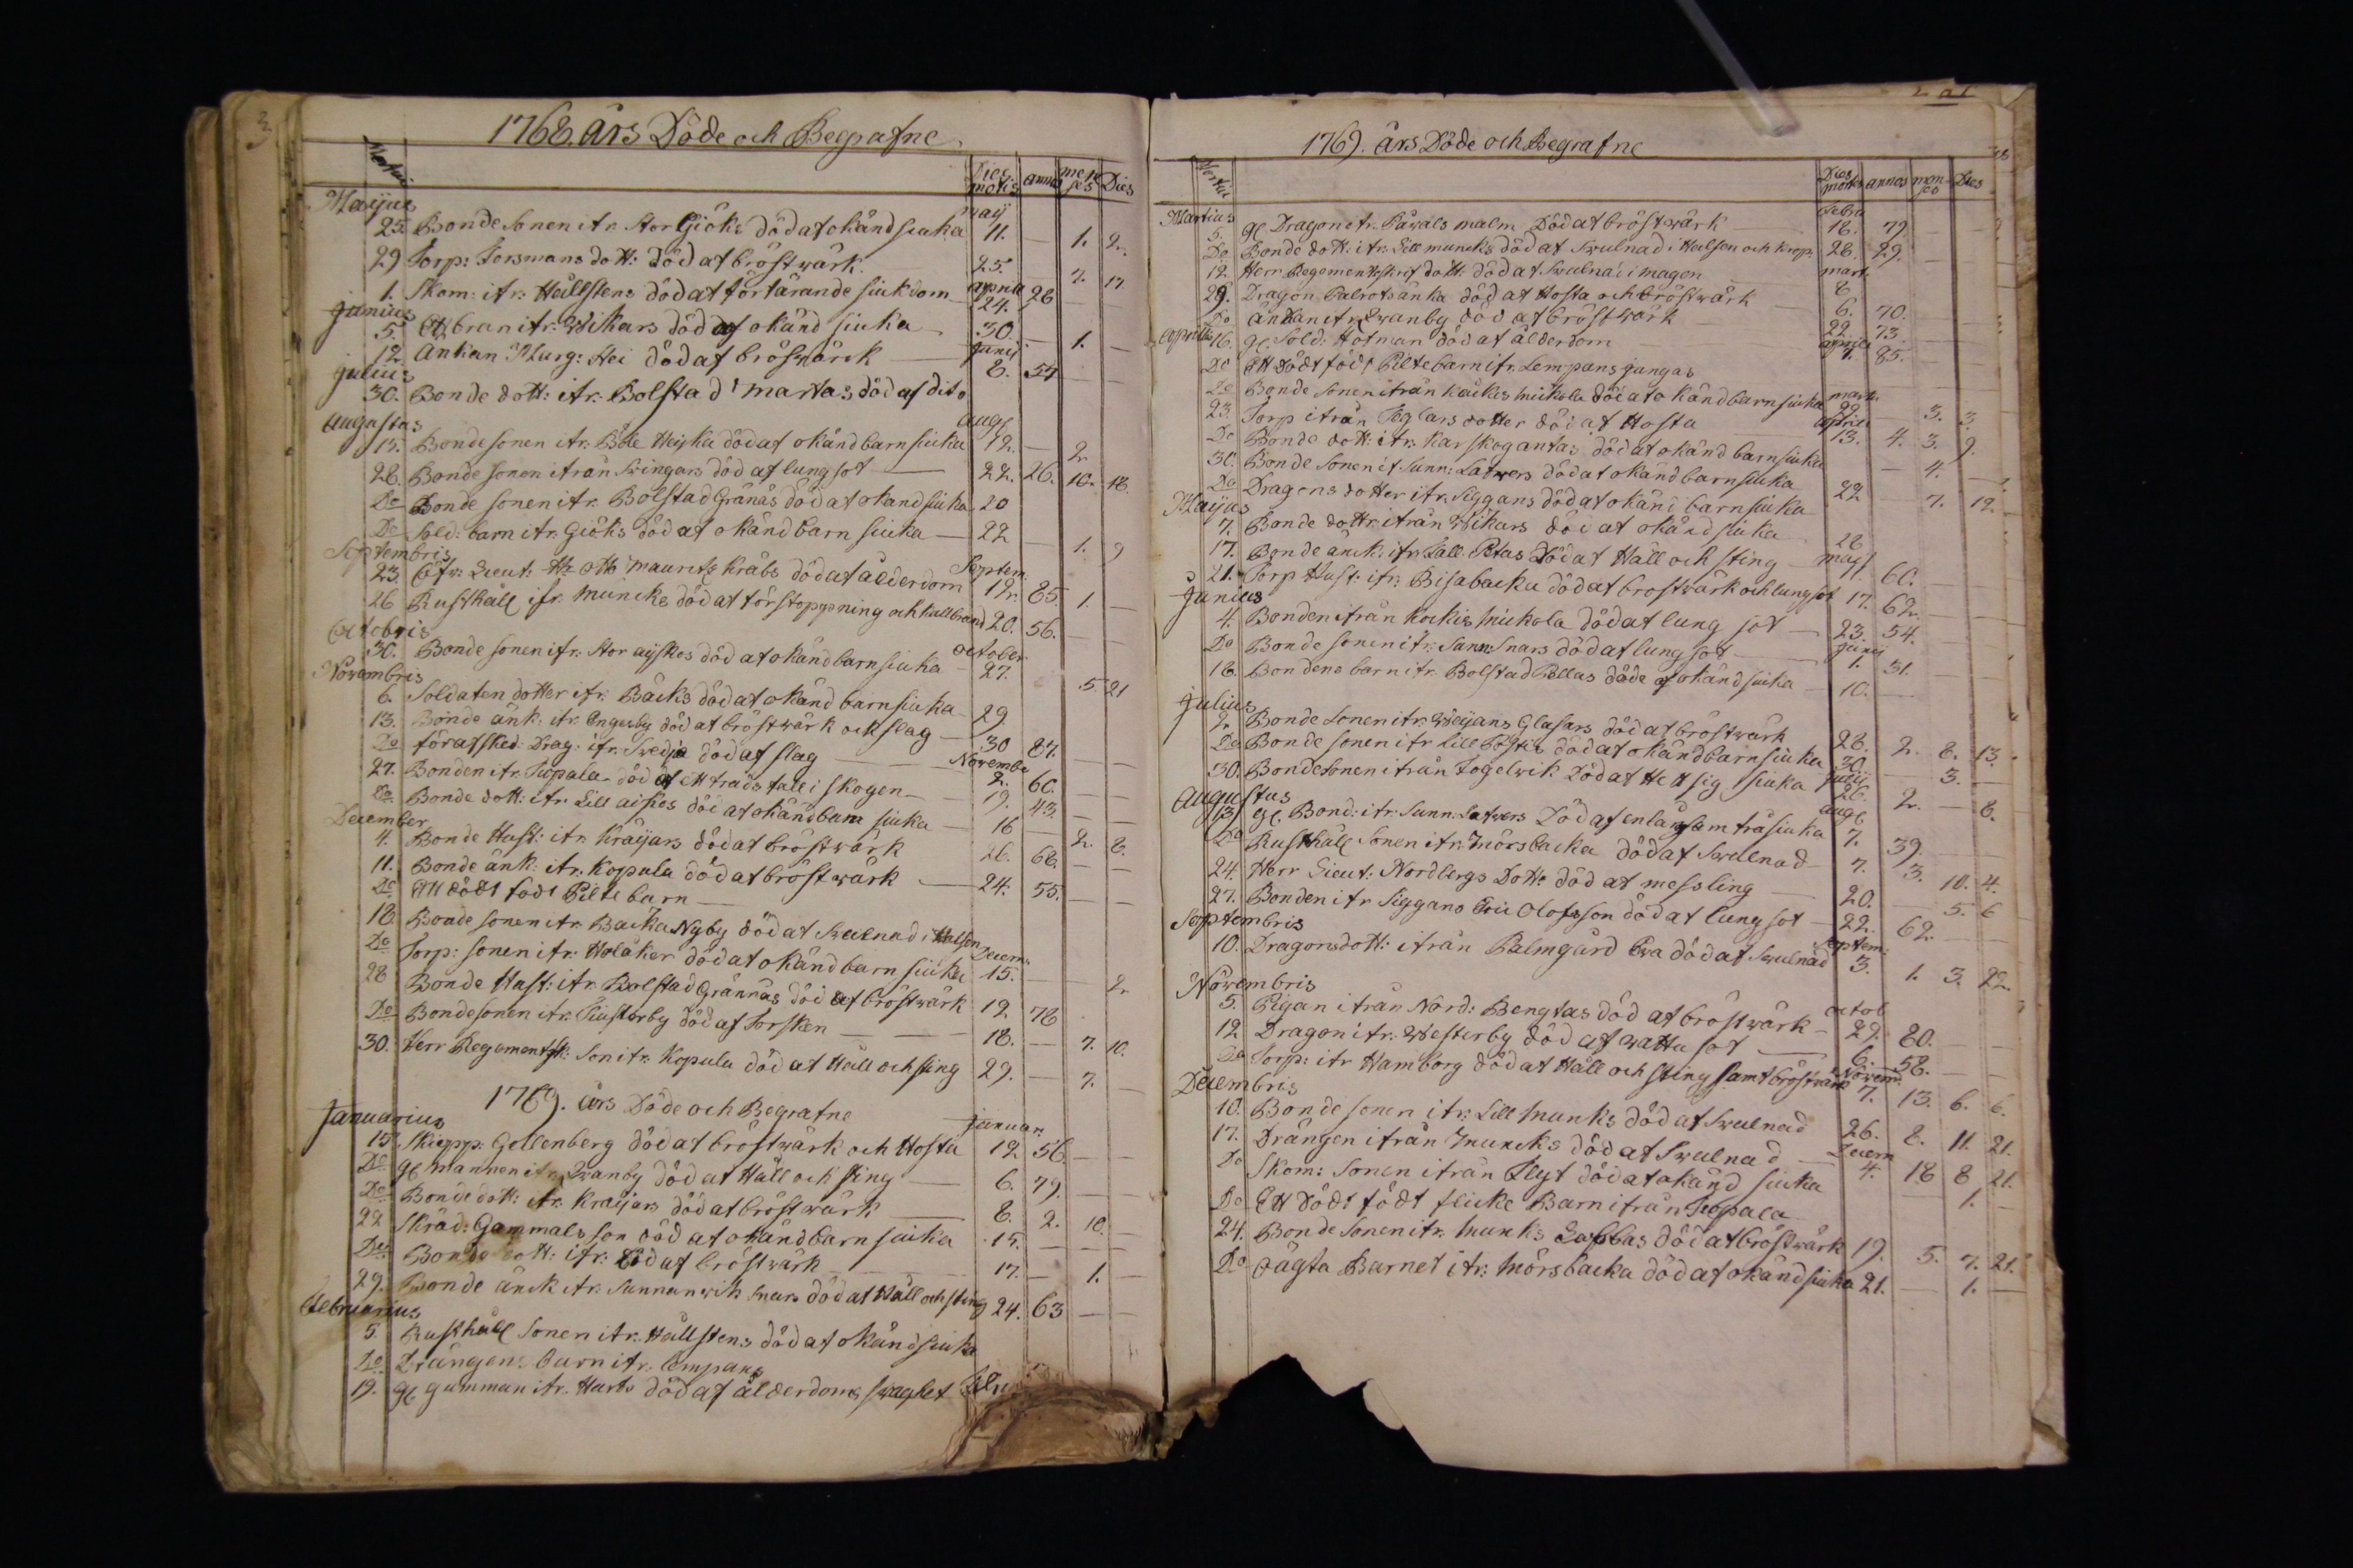 3
1768. års Döde och Begrafne
Dies mortis annos menses Dies
Maijus
maij
25. Bonde sonen ifr. Stor Giöks död af okänd siuka 11. — 1. 2.
29 Torp: Forsmans dott: död af bröstwärk 25. — 7. 17
aprill
1. Skom: ifr. Hällstens död af förtärande siukdom 24. 26
Junius
5. barn ifr. Wikars död af okänd siuka 30. — 1. —
Junij
12. Änkan Marg: Hei död af bröstwärck 8. 54 — —
Julius
30. Bonde dott: ifr. Bolstad Martas död af dito
Augustus
aug
15. Bonde sonen ifr. Böle Heiska död af okänd barn siuka 12. — 2.
28. Bonde sonen ifrån Svingars död af lungsot — 22. 26. 10. 18.
Do Bonde sonen ifr. Bolstad Gränäs död af okänd siuka 20
Do Sold: barn ifr. Giöks död af okänd barn siuka — 22 — 1. 9
Septembris
Septem:
23. Öfw: Lieut: Hr Otto Mauritz Kräbs död af ålderdom 12. 85. 1. —
26 Rusthåll ifr. Muncks död af förstoppning och kallbrand 20. 56. — —
Octobris
October
30. Bonde sonen ifr. Stor aijskes död af okänd barn siuka 27. 5. 21
Novembris
6. Soldaten dotter ifr. Bäcks död af okänd barn siuka 29.
13. Bonde änk: ifr. Engesby död af bröstwärk och slag — 30 87. — —
Novembr
Do förafsked: Drag: ifr. Swedja död af slag — 2. 60. — —
27. Bonden ifr. Kopala död af ett träds fall i skogen — 19. 43. — —
Do Bonde dott: ifr. Lill aiskes död af okänd barn siuka — 16 2. 8.
December
4. Bonde Hust: ifr. Kräijars död af bröstwärk 26. 68. — —
11. Bonde änk: ifr. Kopula död af bröstwärk — 24. 55. — —
Do Ett dödt födt Pilte barn —
18. Bonde sonen ifr. Backa Nyby död af Swulnad i Halsen
Decem:
Do Torp: sonen ifr. Holåker död af okänd barn siuka 15. — 2.
28 Bonde Hust: ifr. Bolstad Grännäs död af bröstwärk 19 78
Do Bonde sonen ifr. Finsterby död af Torsken — 18. — 7. 10.
30. Herr Regements: Son ifr. Kopula död af Håll och sting 29. — 7. —
1769. års Döde och Begrafne
Januarius
Januar.
15. Skepp: Gollenberg död af bröstwärk och Hosta 12 56. — —
Do gl. Mannen ifr. Swanby död af Håll och sting — 6. 79. — —
Do Bonde dott: ifr. Kräijars död af bröstwärk — 8. 2. 10. —
22 Skräd: Gammals son död af okänd barn siuka 15. — — —
Do Bonde dott: ifr. död af bröstwärk 17. — 1. —
29. Bonde änck ifr. Sunnanwik Snars död af Håll och sting 24. 63 — —
Februarius
5. Rusthåll Sonen ifr. Hällstens död af okänd siuka
Do Drängens barn ifr. Lempans
19. gl. gumman ifr. Harts död af ålderdoms swaghet
1769. års Döde och Begrafne
Dies mortis annos menses Dies
Martius
Febru
5. gl. Dragon ifr. Påwals malm död af bröstwärk 18. 79 —
Do Bonde dott: ifr. Lill muncks död af Swulnad i Halsen och krop. 26. 29. —
mart.
12. Herr Regementsskrif dott: död af Swulnad i magen 8
29. Dragon Palrots änka död af Hosta och bröstwärk — 6. 70. —
Do änkan ifr. Swanby död af bröstwärk — 22 73.
Aprilis
aprill
16. gl. Sold: Hofman död af ålderdom 7. 85.
Do Ett dödt född Pilte barn ifr. Lempans jungas
mart.
Do Bonde sonen ifrån Kackis Mickola död af okänd barn siuka 29 — 3. 3.
april
23. Torp ifrån Teglars dotter död af Hosta 13. 4. 3. 9.
Do Bonde dott: ifr. Karskog antas död af okänd barn siuka — 4. —
30. Bonde sonen if. Sunn: Latwers död af okänd barn siuka 22 7. 12.
Do Dragons dotter ifr. Siggans död af okänd barn siuka
Maijus
7. Bonde dottr. ifrån Wikars död af okänd siuka 28
maij
17. Bonde änck: ifr. Tall: Petas Död af Håll och sting — 60. —
21. Torp Hust: ifr. Bisabacka död af bröstwärk och lungsot 17. 62.
Junius
4. Bonden ifrån Kockis Mickola död af lung sot — 23. 54.
Junij
Do Bonde sonen ifr. Sunn: Snars död af lungsot — 1. 31.
18. Bondens barn ifr. Bolstad Pellas döde af okänd siuka 10.
Julius
2. Bonde sonen ifr. Weijans Glasars död af bröstwärk 28. 2. 8. 13.
Do Bonde sonen ifr Lill Böstes död af okänd barn siuka 30. — 3. —
Julij
30. Bonde Sonen ifrån Fogelwik Död af Hetsig siuka 26. 2. — 8.
Augustus
aug
13 gl. Bond: ifr. Sunn: Latwers Död af en långsam träsiuka 7. 39. —
Do Rusthåll Sonen ifr. Mörsbacka död af Swulnad 7. 3. 10. 4.
24. Herr Lieut: Nordbergs Dott: död af messling — 20. — 5. 6
27. Bonden ifr Siggans Eric Olofsson död af lungsot — 22. 62. — —
Septembris
Septem:
10. Dragons dott: ifrån Palmgård Eva död af Swulnad 3. 1. 3. 22.
Novembris
octob
5. Pigan ifrån Nord: Bengtas död af bröstwärk — 29. 80. — —
12 Dragon ifr. Westerby död af wattusot — 6. 58. — —
Novem.
Do Torp: ifr Hamborg död af Håll och sting samt bröstwärk 7. 13. 6. 6.
Decembris
10. Bonde sonen ifr. Lill Munks död af Swulnad 26. 8. 11. 21.
Decem
17. Drängen ifrån Muncks död af Swulnad — 4. 18 8 21.
Do Skom: Sonen ifrån Flyt död af okänd siuka 1. —
Do Ett Dödt födt flicke Barn ifrån Kopala
24. Bonde Sonen ifr. Munks Labbas död af bröstwärk 19. 5. 7. 21.
Do oägta Barnet ifr: Mörsbacka död af okänd siuka 21. — 1. —